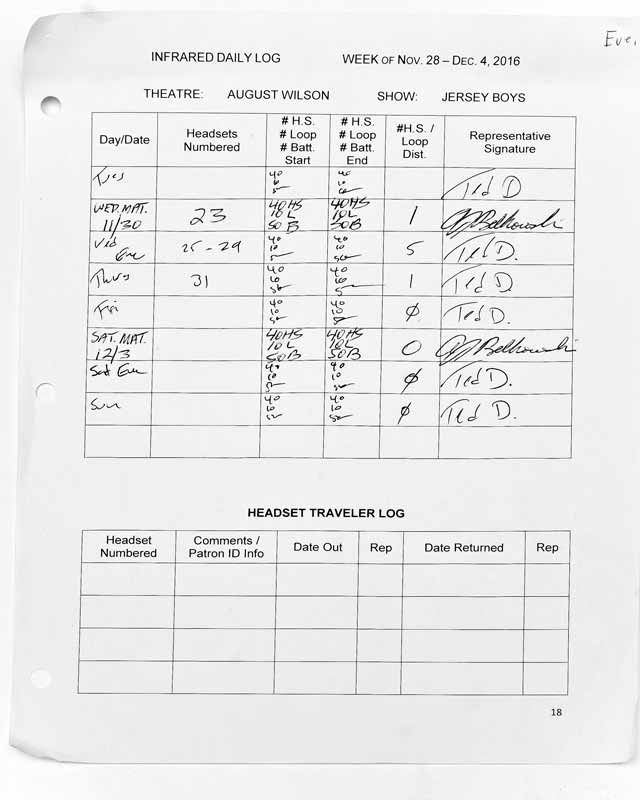 Eve.
INFRARED DAILY LOG WEEK OF NOV. 28 – DEC. 4, 2016
THEATRE: AUGUST WILSON SHOW: JERSEY BOYS
Day/Date Headsets Numbered # H.S. # Loop # Batt. Start # H.S. # Loop # Batt. End #H.S. / Loop Dist. Representative Signature
Tues 40 40 Ted D
WED. MAT. 11/30 23 40HS 10L 50B 40HS 10L 50B 1 Belkowski
Wed Eve 25-29 40 10 40 10 50 5 Ted D.
Thurs 31 40 10 50 40 10 1 Ted D
Fri 40 10 50 40 10 Ø Ted D.
SAT. MAT. 12/3 40HS 10L 50B 40HS 10L 50B 0 Belkowski
Sat Eve 40 10 40 10 50 Ø Ted D.
Sun 40 10 50 40 10 50 Ø Ted D.
HEADSET TRAVELER LOG
Headset Numbered Comments / Patron ID Info Date Out Rep Date Returned Rep
18